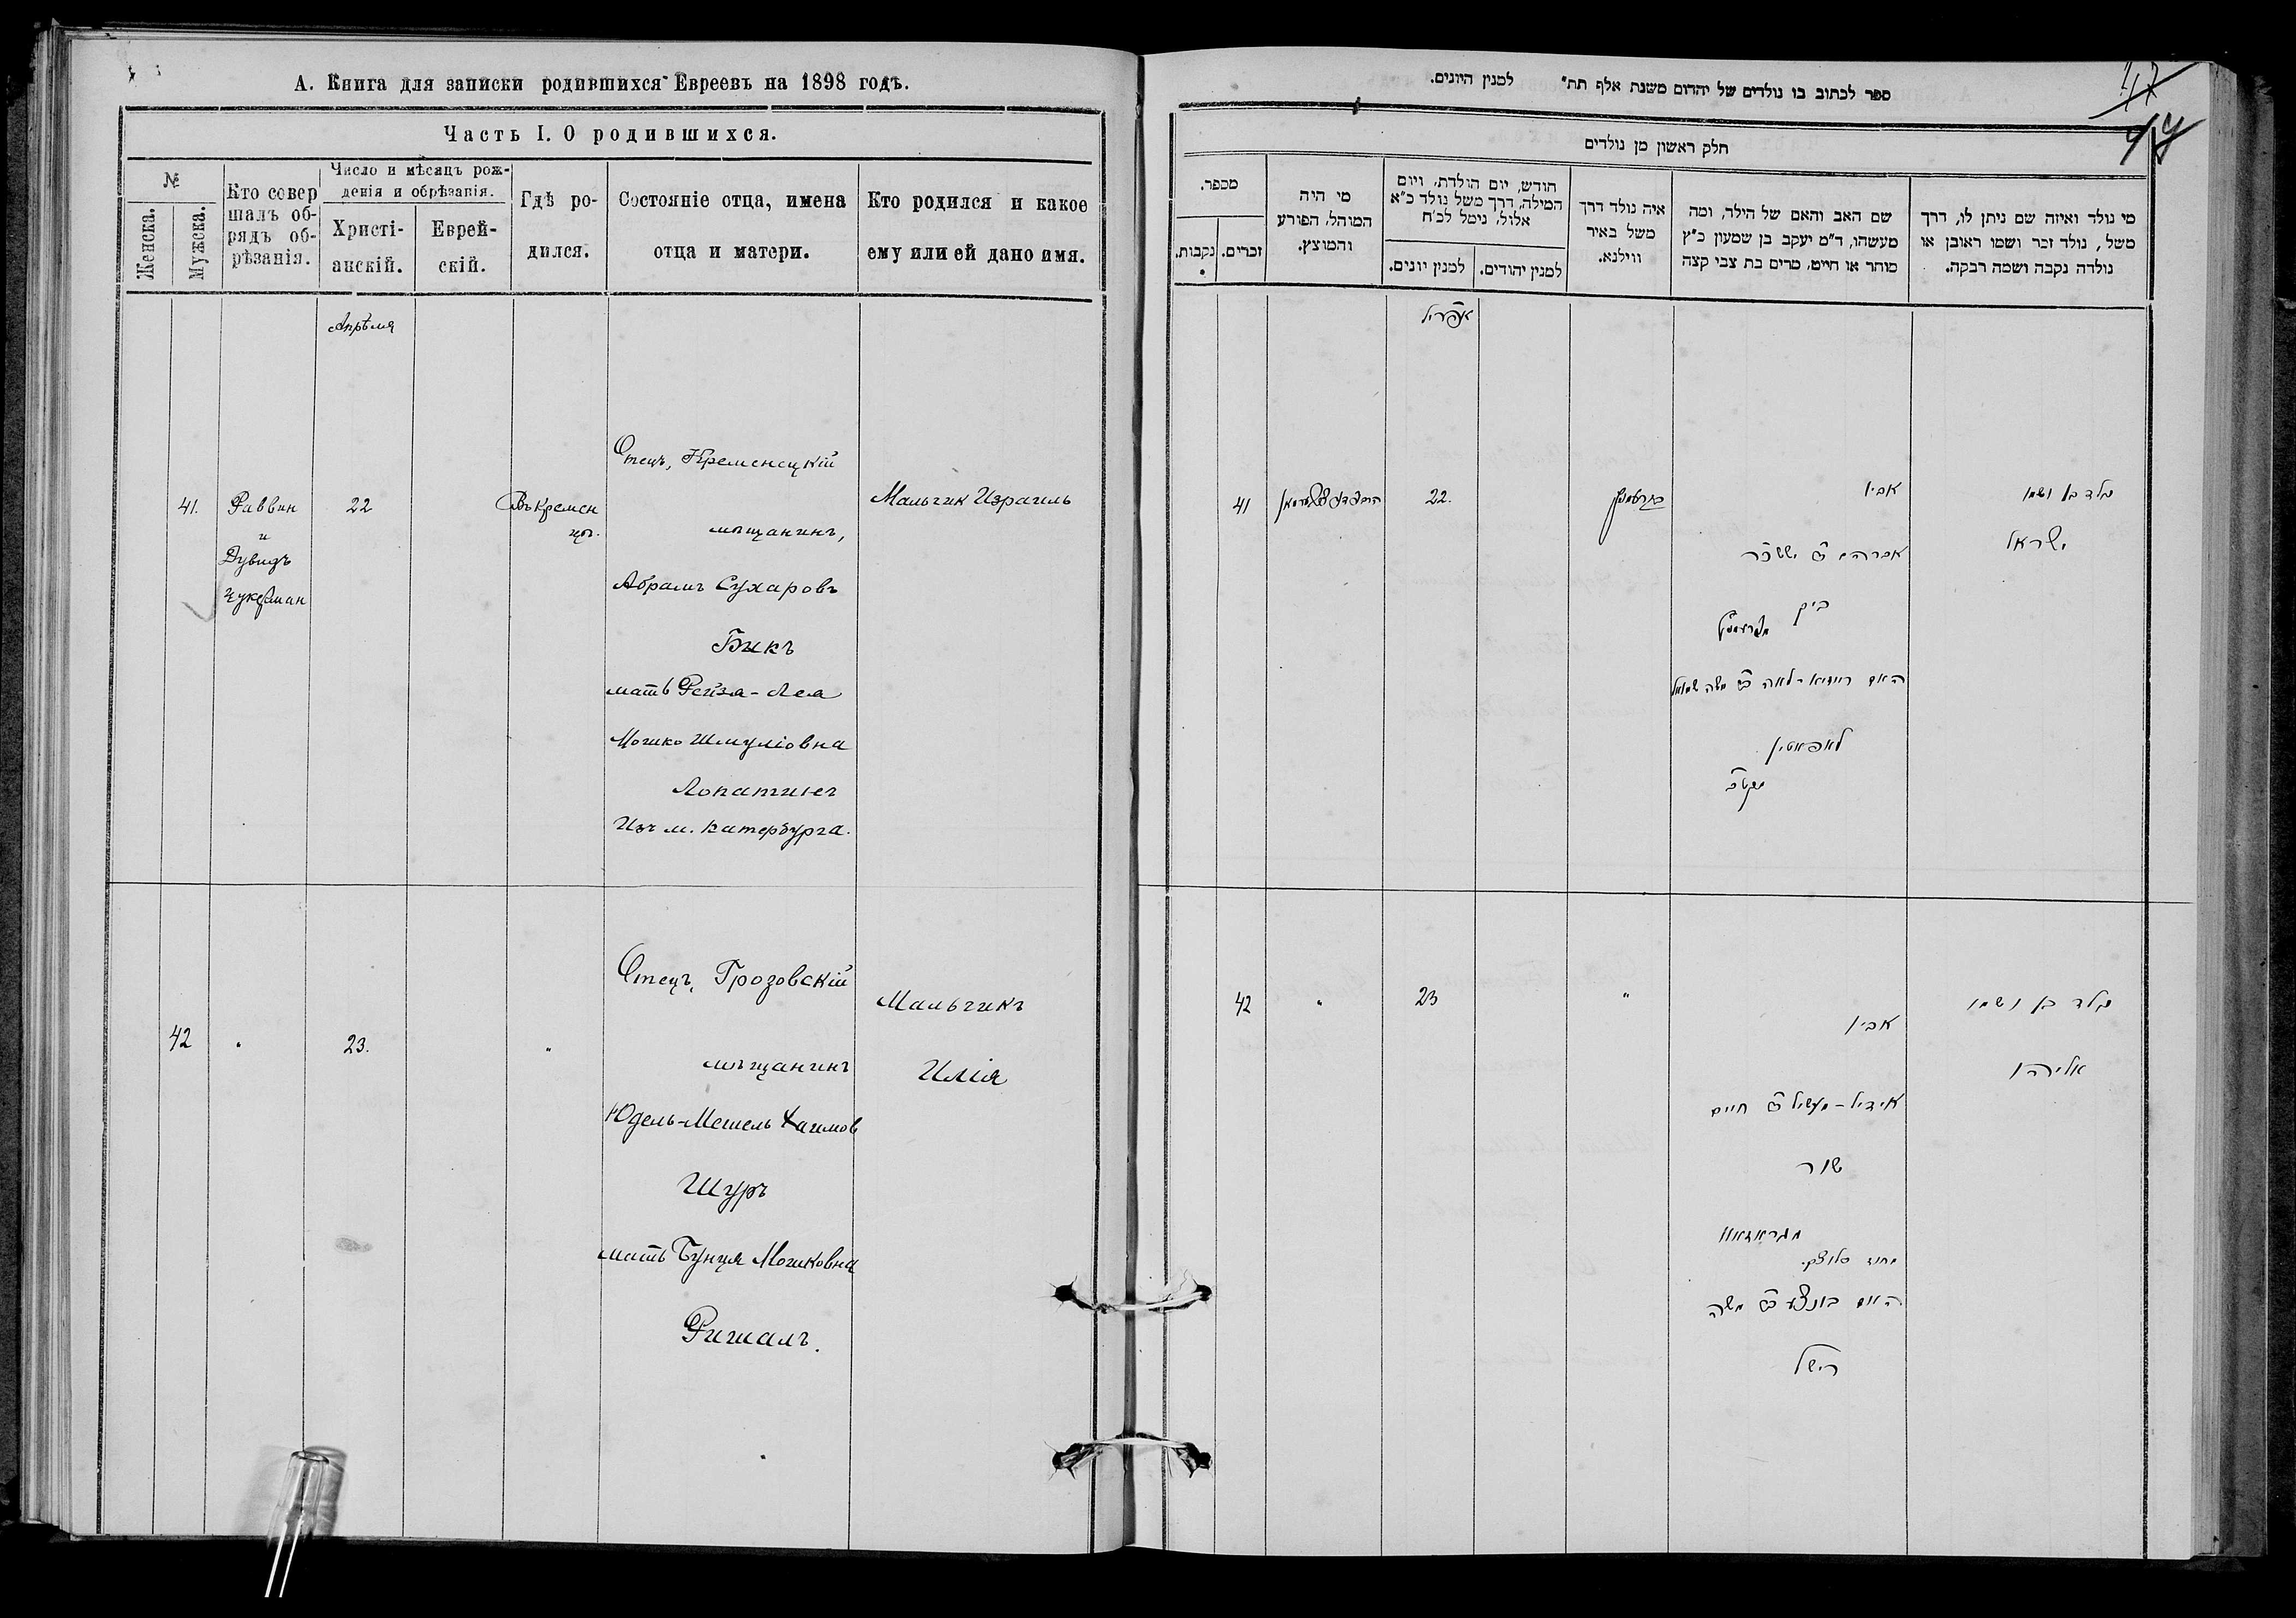 А. Книга для записки родившихся Евреевъ на 1898 годъ.
Часть I. О родившихся.
№
Женска.
Мужска.
Кто совер
шалъ об-
рядъ об-
рѣзанія.
Число и мѣсяцъ рож-
денія и обрѣзанія.
Христі-
анскій.
Еврей-
скій.
Гдѣ ро-
дился.
Состояніе отца, имена
отца и матери.
Кто родился и какое
ему или ей дано имя.
Апрѣля
41.
Раввин
и
Дувидъ
Цукерман
22
Въ Кремен
цѣ.
Отецъ, Кременецкій
мѣщанинъ,
Абрамъ Сухаровъ
Бикъ
мать Рейзя-Лея
Мошко Шмуліовна
Лопатинъ
Изъ м. Катербурга.
Мальчик Израиль
42
"
23.
"
Отецъ, Грозовскій
мѣщанинъ
Юдель-Мешель Хаимов
Шуръ
мать Бунця Мошковна
Ришалъ.
Мальчикъ
Илія
ספר לכתוב בו נולדים של יהדום משנת אלף תת" למנין היונים.
חלק ראשון מן נולדים
מספר.
זכרים.
נקבות.
מי היה
המוהל, הפורע
והמוצץ.
חודש, יום הולדת, ויום
המילה, דרך משל נולד כ"א
אלול, נימל לכ"ח
למנין יונים.
למנין יהודים.
איה נולד דרך
משל באיר
ווילנא.
שם האב והאם של הילד, ומה
מעשהו, ד"מ יעקב בן שמעון כ"ץ
סוחר או חייט, מרים בת צבי קצה
מי נולד ואיזה שם ניתן לו, דרך
משל, נולד זכר ושמו ראובן או
נולדה נקבה ושמה רבקה.
אפריל
41
22.
אביו
אברהם ב"ר יששכר
ביק
מקרעמניץ
האם רייזיא-לאה ב"ר משה שמואל
לאפאטין
נולד בן ושמו
ישראל
42
"
23
"
אביו
אידיל-מעשיל ב"ר חיים
שור
מגראזאוו
מחוז סלוצק.
האם בונציע ב"ר משה
רישל
נולד בן ושמו
אליהו